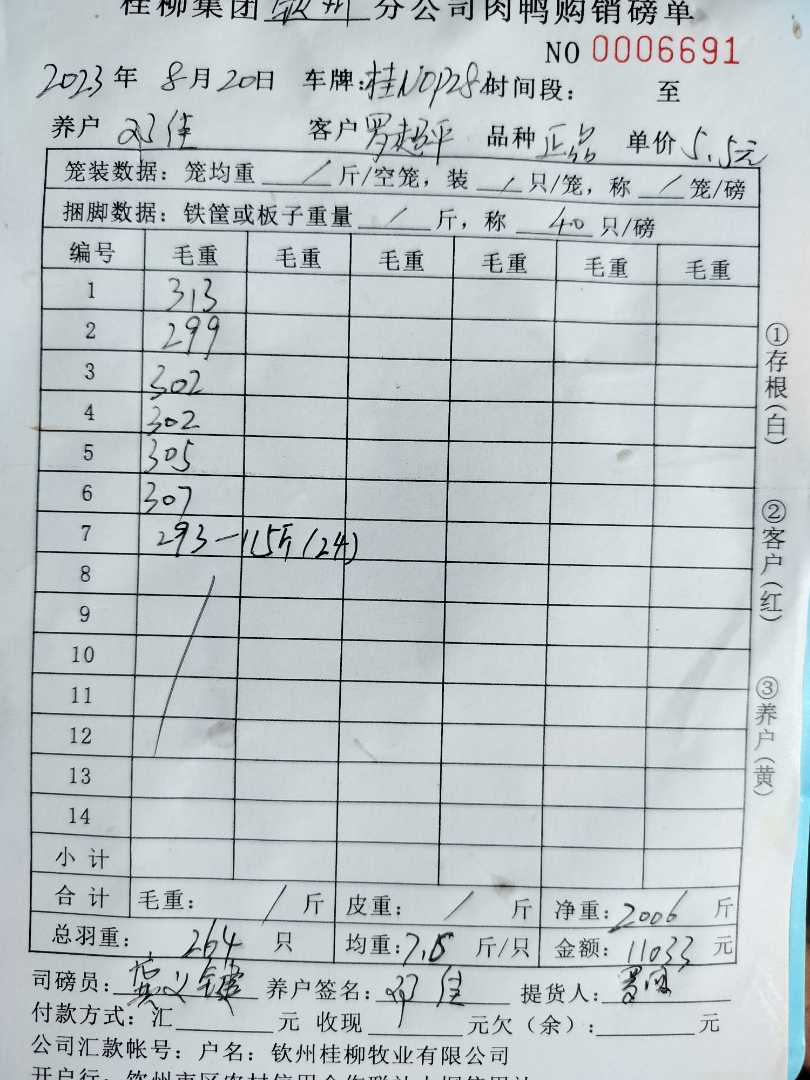 桂柳集团 钦州 分公司肉鸭购销磅单
NO 0006691
2023年 8月20日 车牌:桂N0P28 时间段: 至
养户 邓佳 客户 罗超平 品种 正品 单价 5.5元
笼装数据:笼均重 / 斤/空笼,装 / 只/笼,称 / 笼/磅
捆脚数据:铁筐或板子重量 / 斤,称 40 只/磅
编号 毛重 毛重 毛重 毛重 毛重 毛重
1 313
2 299
3 302
4 302
5 305
6 307
7 293-115斤(24)
8
9
10
11
12
13
14
小计
合计 毛重: / 斤 皮重: / 斤 净重:2006 斤
总羽重: 264 只 均重:7.6 斤/只 金额:11033 元
司磅员: 养户签名:邓佳 提货人:
付款方式:汇 元 收现 元欠(余): 元
公司汇款帐号:户名:钦州桂柳牧业有限公司
①存根(白)
②客户(红)
③养户(黄)